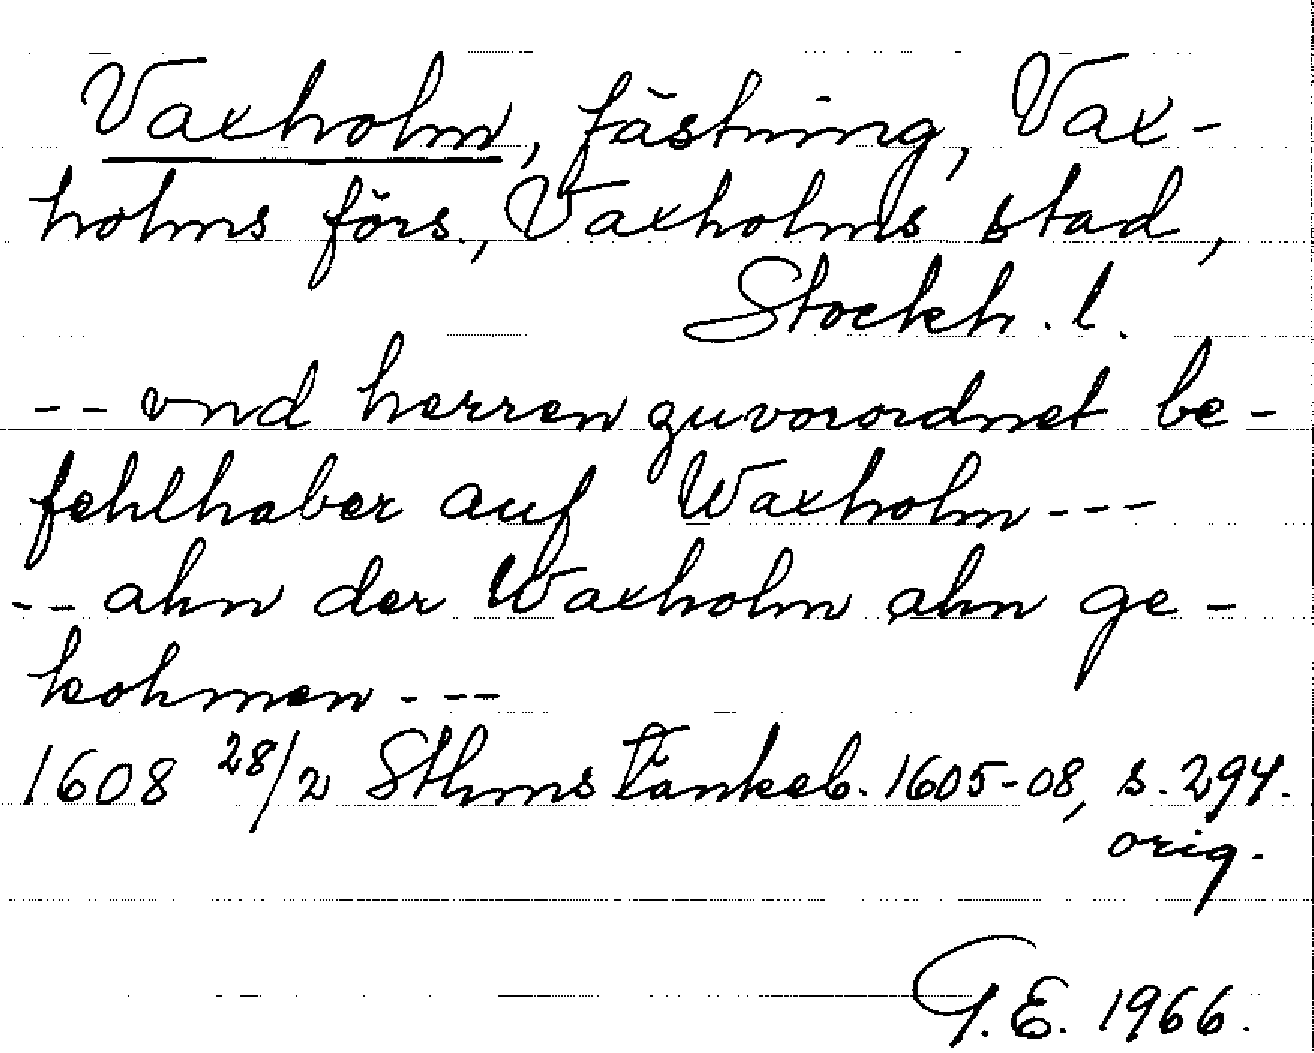 Vaxholm, fästning, Vax-
holms förs., Vaxholms stad,
Stockh. l.
-- vnd herren zuvorordnet be-
fehlhaber auf Waxholm ---
-- ahn der Waxholm ahn ge-
kohmen ---
1608 28/2 Sthms Tänkeb. 1605-08, s. 294.
orig.
G.E. 1966.